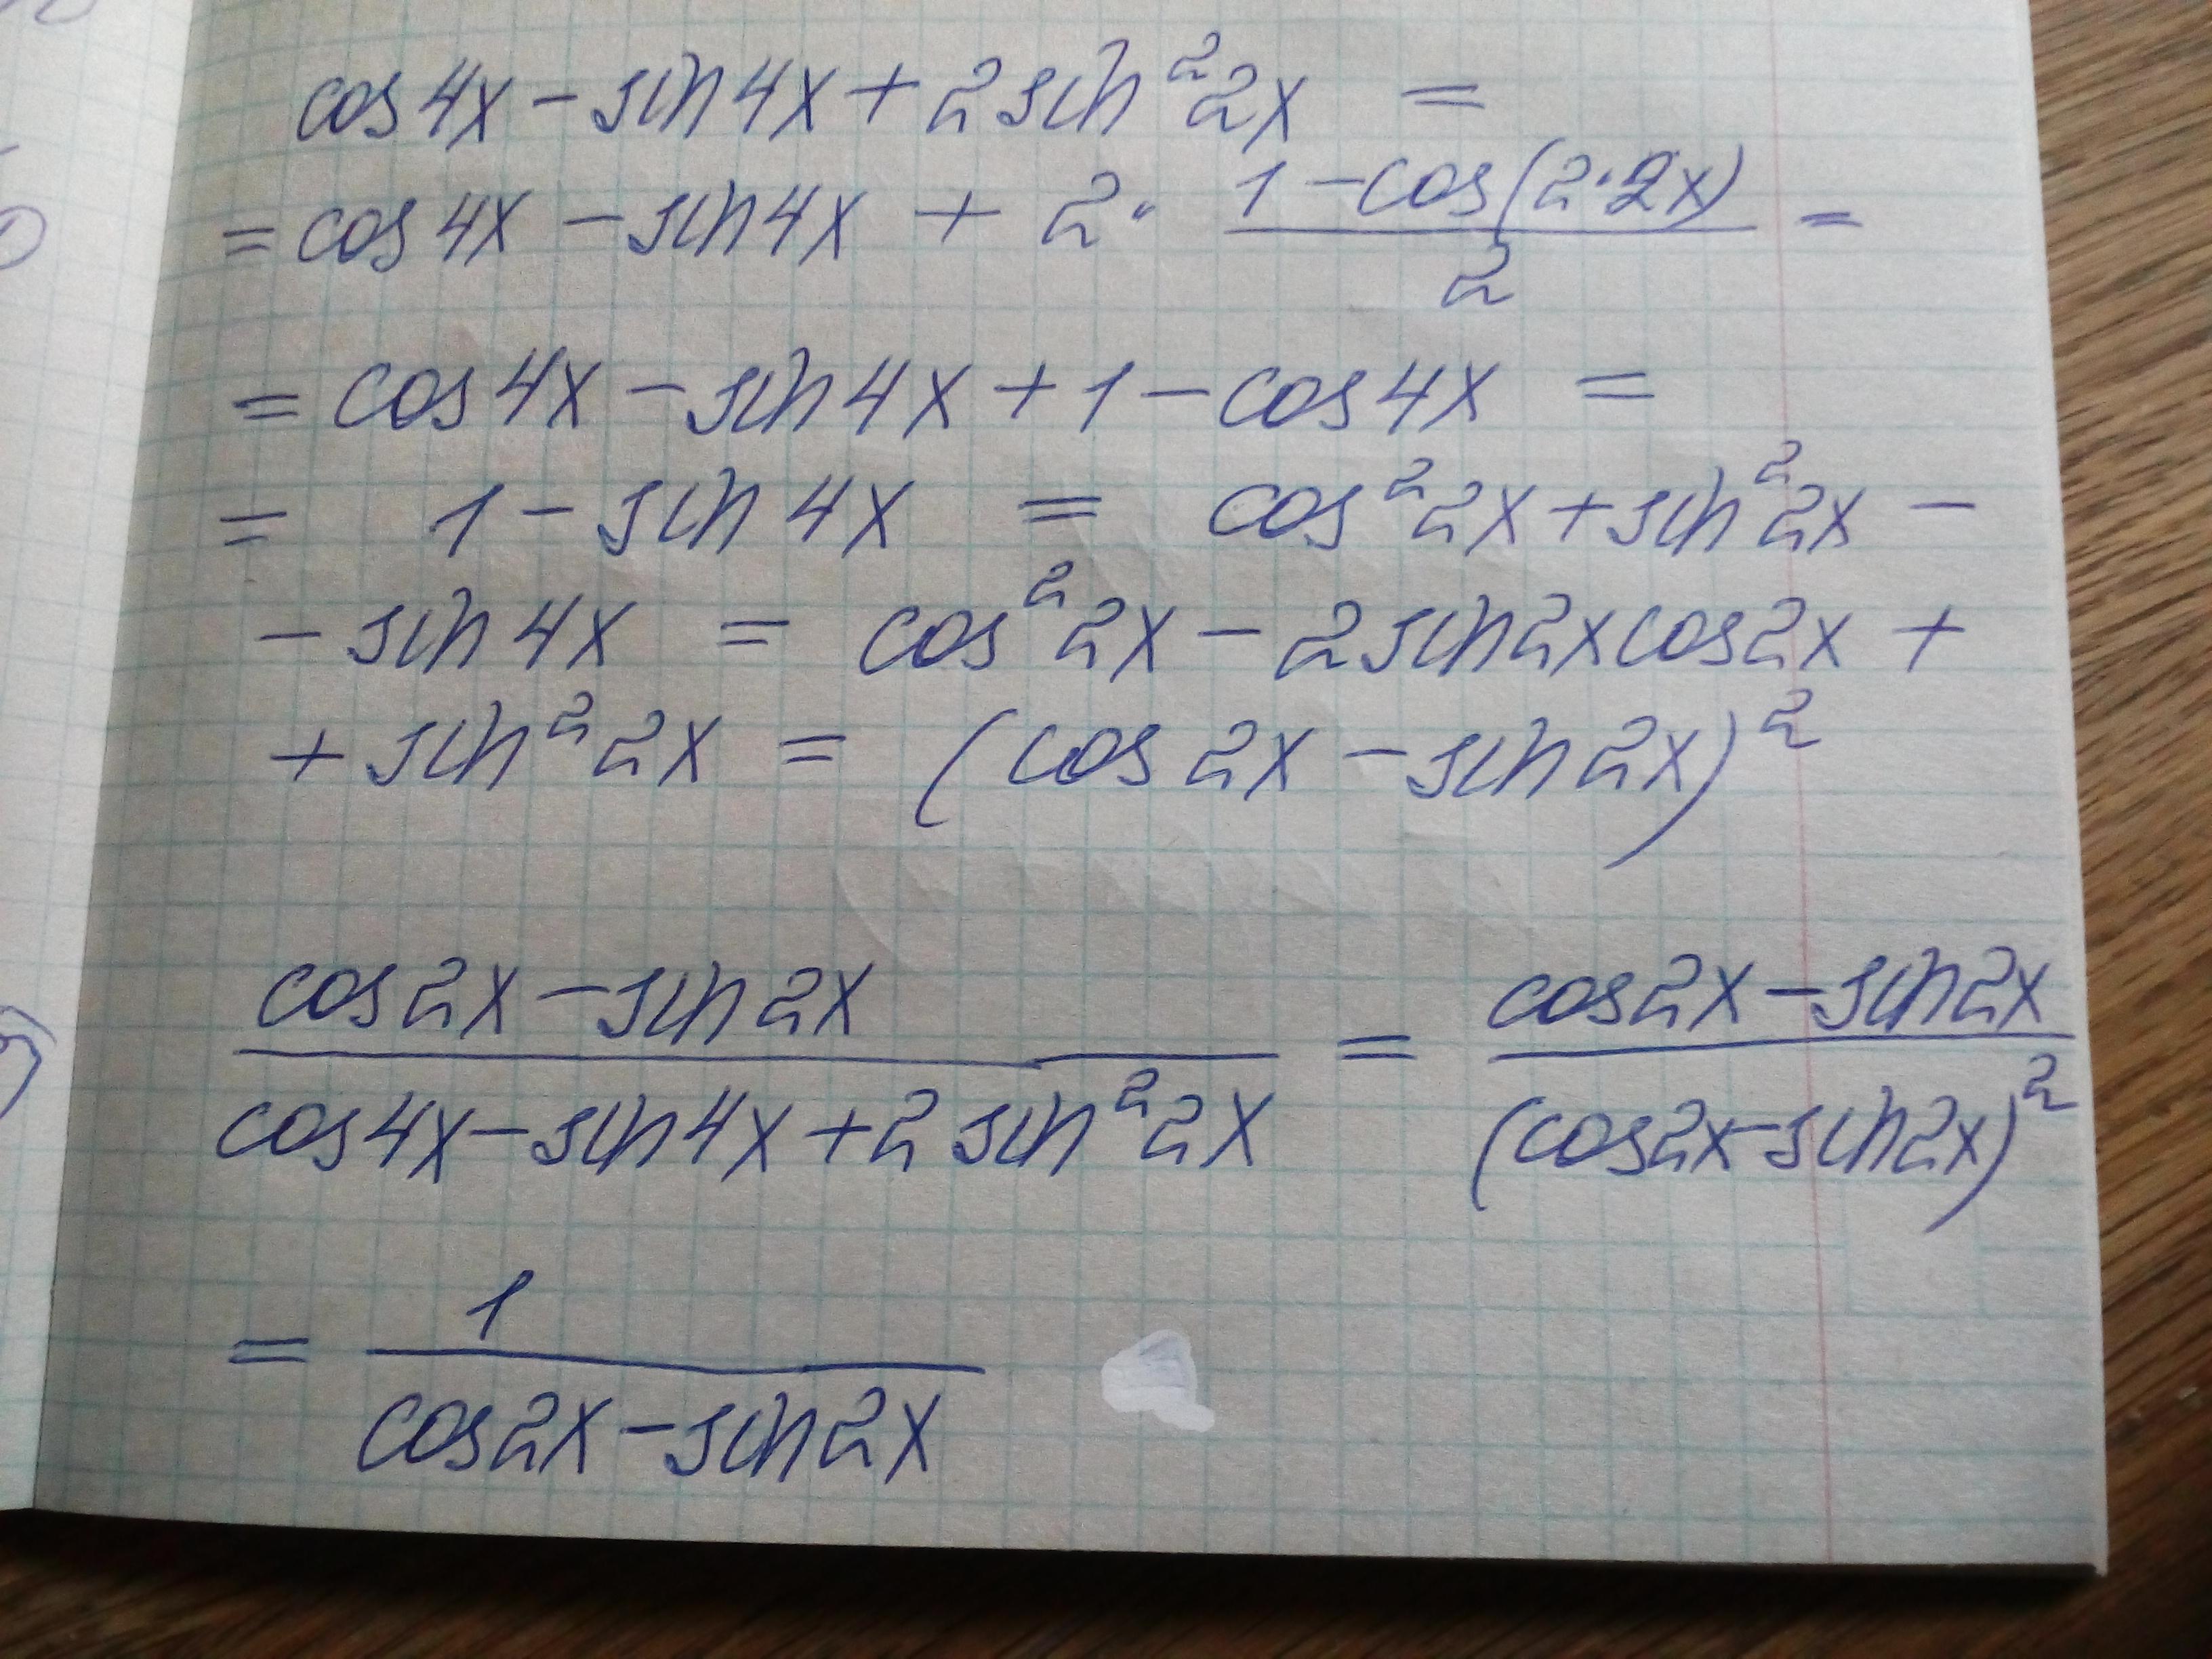 cos4x - sin4x + 2sin²2x =
= cos4x - sin4x + 2 · (1 - cos(2·2x))/2 =
= cos4x - sin4x + 1 - cos4x =
= 1 - sin4x = cos²2x + sin²2x -
- sin4x = cos²2x - 2sin2xcos2x +
+ sin²2x = (cos2x - sin2x)²
(cos2x - sin2x)/(cos4x - sin4x + 2sin²2x) = (cos2x - sin2x)/(cos2x - sin2x)²
= 1/(cos2x - sin2x)